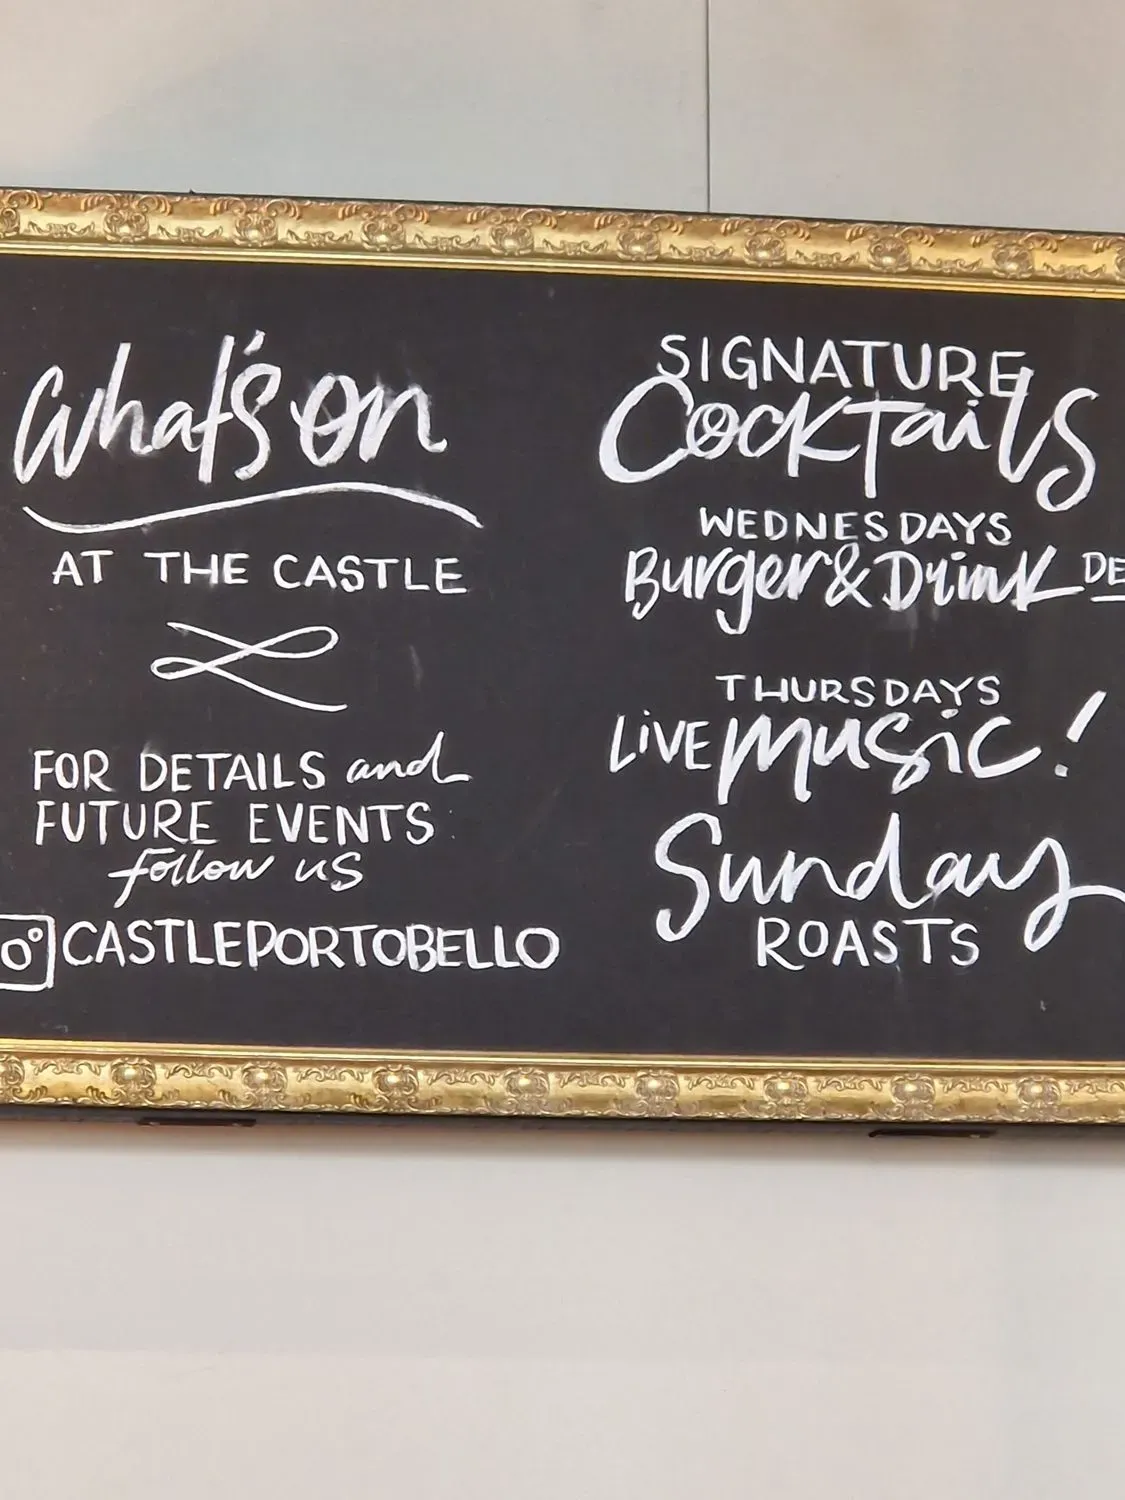 What's on
AT THE CASTLE
FOR DETAILS and
FUTURE EVENTS
follow us
CASTLEPORTOBELLO
SIGNATURE
Cocktails
WEDNESDAYS
Burger & Drink DE
THURSDAYS
LiVE music!
Sunday
ROASTS